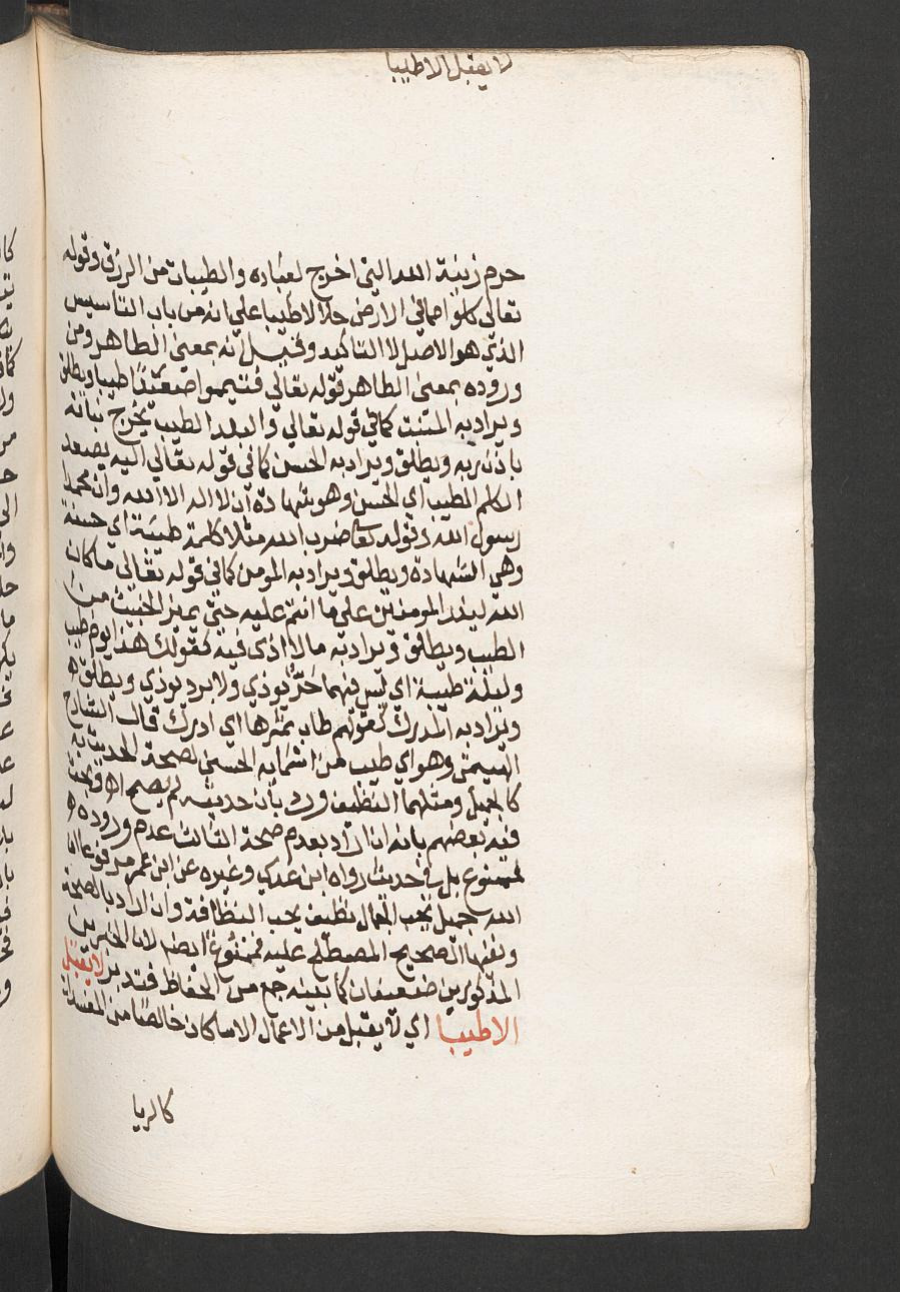 لا يقبل الا طيبا
حرم زينة الله التي اخرج لعباده والطيبات من الرزق وقوله
تعالي كلوا مما في الارض حلالا طيبا علي انه من باب التاسيس
الذي هو الاصل لا التاكيد وقيل انه بمعني الطاهر ومن
وروده بمعني الطاهر قوله تعالي فتيمموا صعيدا طيبا ويطلق
ويراد به المنبت كما في قوله تعالي والبلد الطيب يخرج نباته
باذن ربه ويطلق ويراد به الحسن كما في قوله تعالي اليه يصعد
الكلم الطيب اي الحسن وهو شهادة ان لا اله الا الله وان محمدا
رسول الله وقوله تعا ضرب الله مثلا كلمة طيبة اي حسنة
وهي الشهادة ويطلق ويراد به المومن كما في قوله تعالي ما كان
الله ليذر المومنين علي ما انتم عليه حتي يميز الخبيث من
الطيب ويطلق ويراد به ما لا اذي فيه كقولك هذا يوم طيب
وليلة طيبة اي ليس فيهما حر يوذي ولا برد يوذي ويطلق
ويراد به المدرك كقولهم طاب تمرها اي ادرك قال الشارح
الهيتمي وهو اي طيب من اسمايه الحسني لصحة الحديث به
كالجميل ومثلهما النظيف ورد بان حديثه لم يصح اه وبحث
فيه بعضهم بانه ان اراد بعدم صحة الثالث عدم وروده
فممنوع بل في حديث رواه ابن عدي وغيره عن ابن عمر مرفوعا ان
الله جميل يحب الجمال نظيف يحب النظافة وان اراد بالصحة
ونفيها الصحيح المصطلح عليه فممنوع ايضا لان الخبرين
المذكورين ضعيفان كما بينه جمع من الحفاظ فتدبر لا يقبل
الا طيبا اي لا يقبل من الاعمال الا ما كان خالصا من المفسدات
كالريا